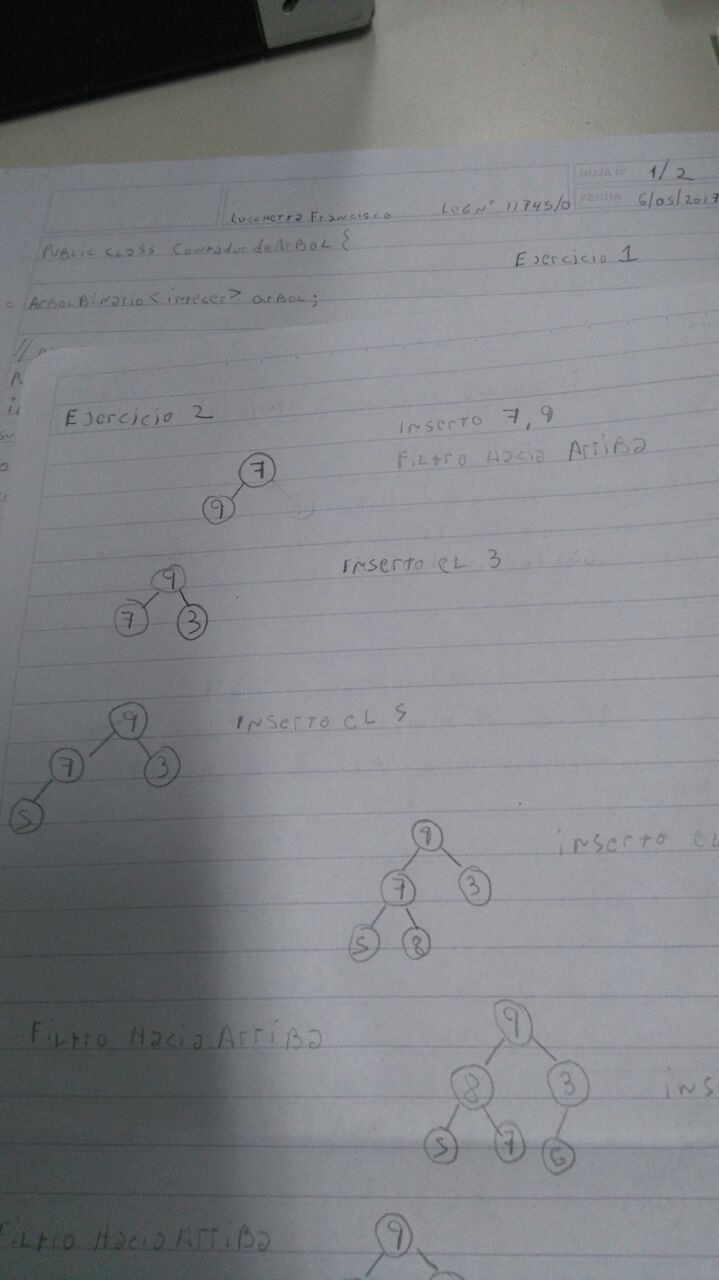 HOJA Nº 1/2
Lucchetta Francisco LEG Nº 11745/0 FECHA 6/05/2017
Public class ContadordeArbol {
Ejercicio 1
ArbolBinario<integer> arbol;
//
Ejercicio 2
inserto 7, 9
Filtro Hacia Arriba
7
9
inserto el 3
9
7 3
inserto el 5
9
7 3
5
inserto el
9
7 3
5 8
Filtro Hacia Arriba
9
8 3
ins
5 7 6
Filtro Hacia Arriba
9